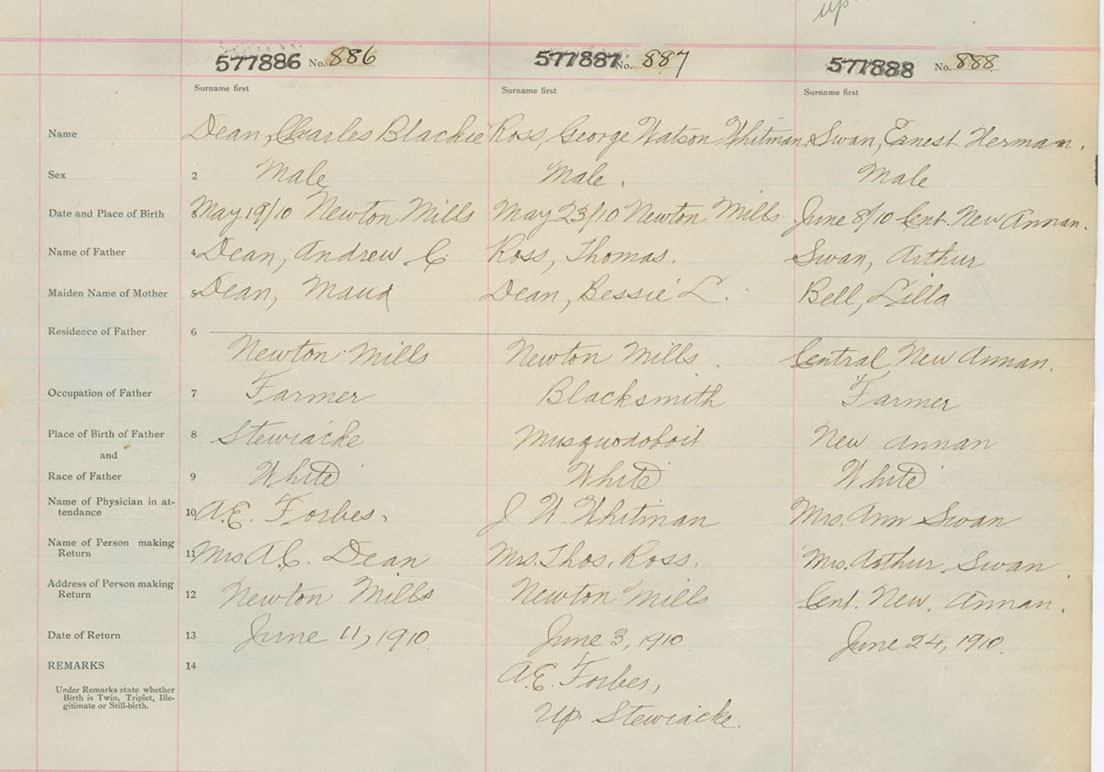 up
577886 No. 886 577887 No. 887 577888 No. 888
Surname first Surname first Surname first
Name Dean, Charles Blackie Ross, George Watson Whitman Swan, Ernest Herman.
Sex 2 Male Male. Male
Date and Place of Birth 3 May 19/10 Newton Mills May 23/10 Newton Mills June 8/10 Cent. New Annan.
Name of Father 4 Dean, Andrew C. Ross, Thomas. Swan, Arthur
Maiden Name of Mother 5 Dean, Maud Dean, Bessie L. Bell, Lilla
Residence of Father 6
Newton Mills Newton Mills. Central New Annan.
Occupation of Father 7 Farmer Blacksmith Farmer
Place of Birth of Father 8 Stewiacke Musquodoboit New Annan
and
Race of Father 9 White White White
Name of Physician in at-
tendance 10 A.E. Forbes. J W. Whitman Mrs. Ann Swan
Name of Person making
Return 11 Mrs A.C. Dean Mrs. Thos. Ross. Mrs. Arthur Swan
Address of Person making
Return 12 Newton Mills Newton Mills Cent. New. Annan.
Date of Return 13 June 11, 1910. June 3, 1910 June 24, 1910.
REMARKS 14 A.E. Forbes,
Under Remarks state whether
Birth is Twin, Triplet, Ille-
gitimate or Still-birth.
Up. Stewiacke.